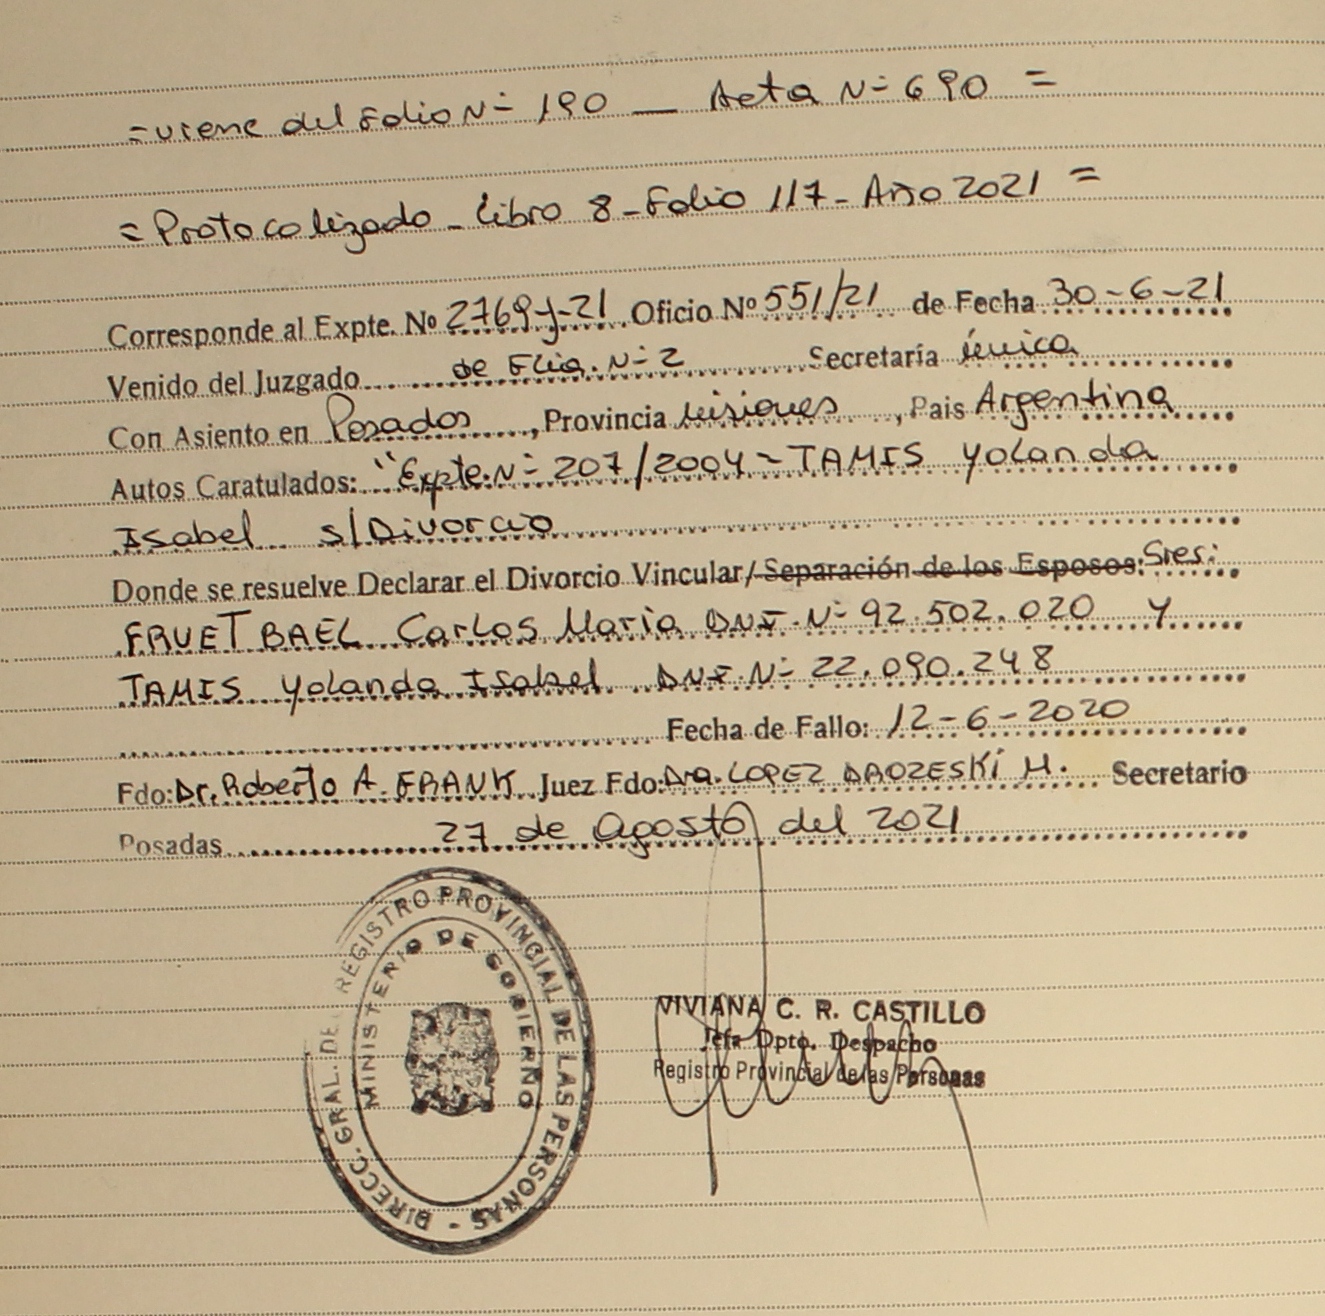 =viene del Folio Nº 190 — Acta Nº 690 =
= Protocolizado - Libro 8 - Folio 117 - Año 2021 =
Corresponde al Expte. Nº 2769-y-21 Oficio Nº 551/21 de Fecha 30-6-21
Venido del Juzgado de Flia. Nº 2 Secretaría única
Con Asiento en Posadas, Provincia Misiones, Pais Argentina
Autos Caratulados: "Expte. Nº 207/2004 - TAMIS Yolanda
Isabel s/Divorcio
Donde se resuelve Declarar el Divorcio Vincular/Separación de los Esposos: Sres:
FRUET BAEL Carlos María DNI. Nº 92.502.020 y
TAMIS Yolanda Isabel DNI. Nº 22.090.248
Fecha de Fallo: 12-6-2020
Fdo: Dr. Roberto A. FRANK Juez Fdo: Dra. LOPEZ DROZESKI M. Secretario
Posadas 27 de agosto del 2021
DIRECC. GRAL. DE REGISTRO PROVINCIAL DE LAS PERSONAS -
MINISTERIO DE GOBIERNO
VIVIANA C. R. CASTILLO
Jefa Dpto. Despacho
Registro Provincial de las Personas